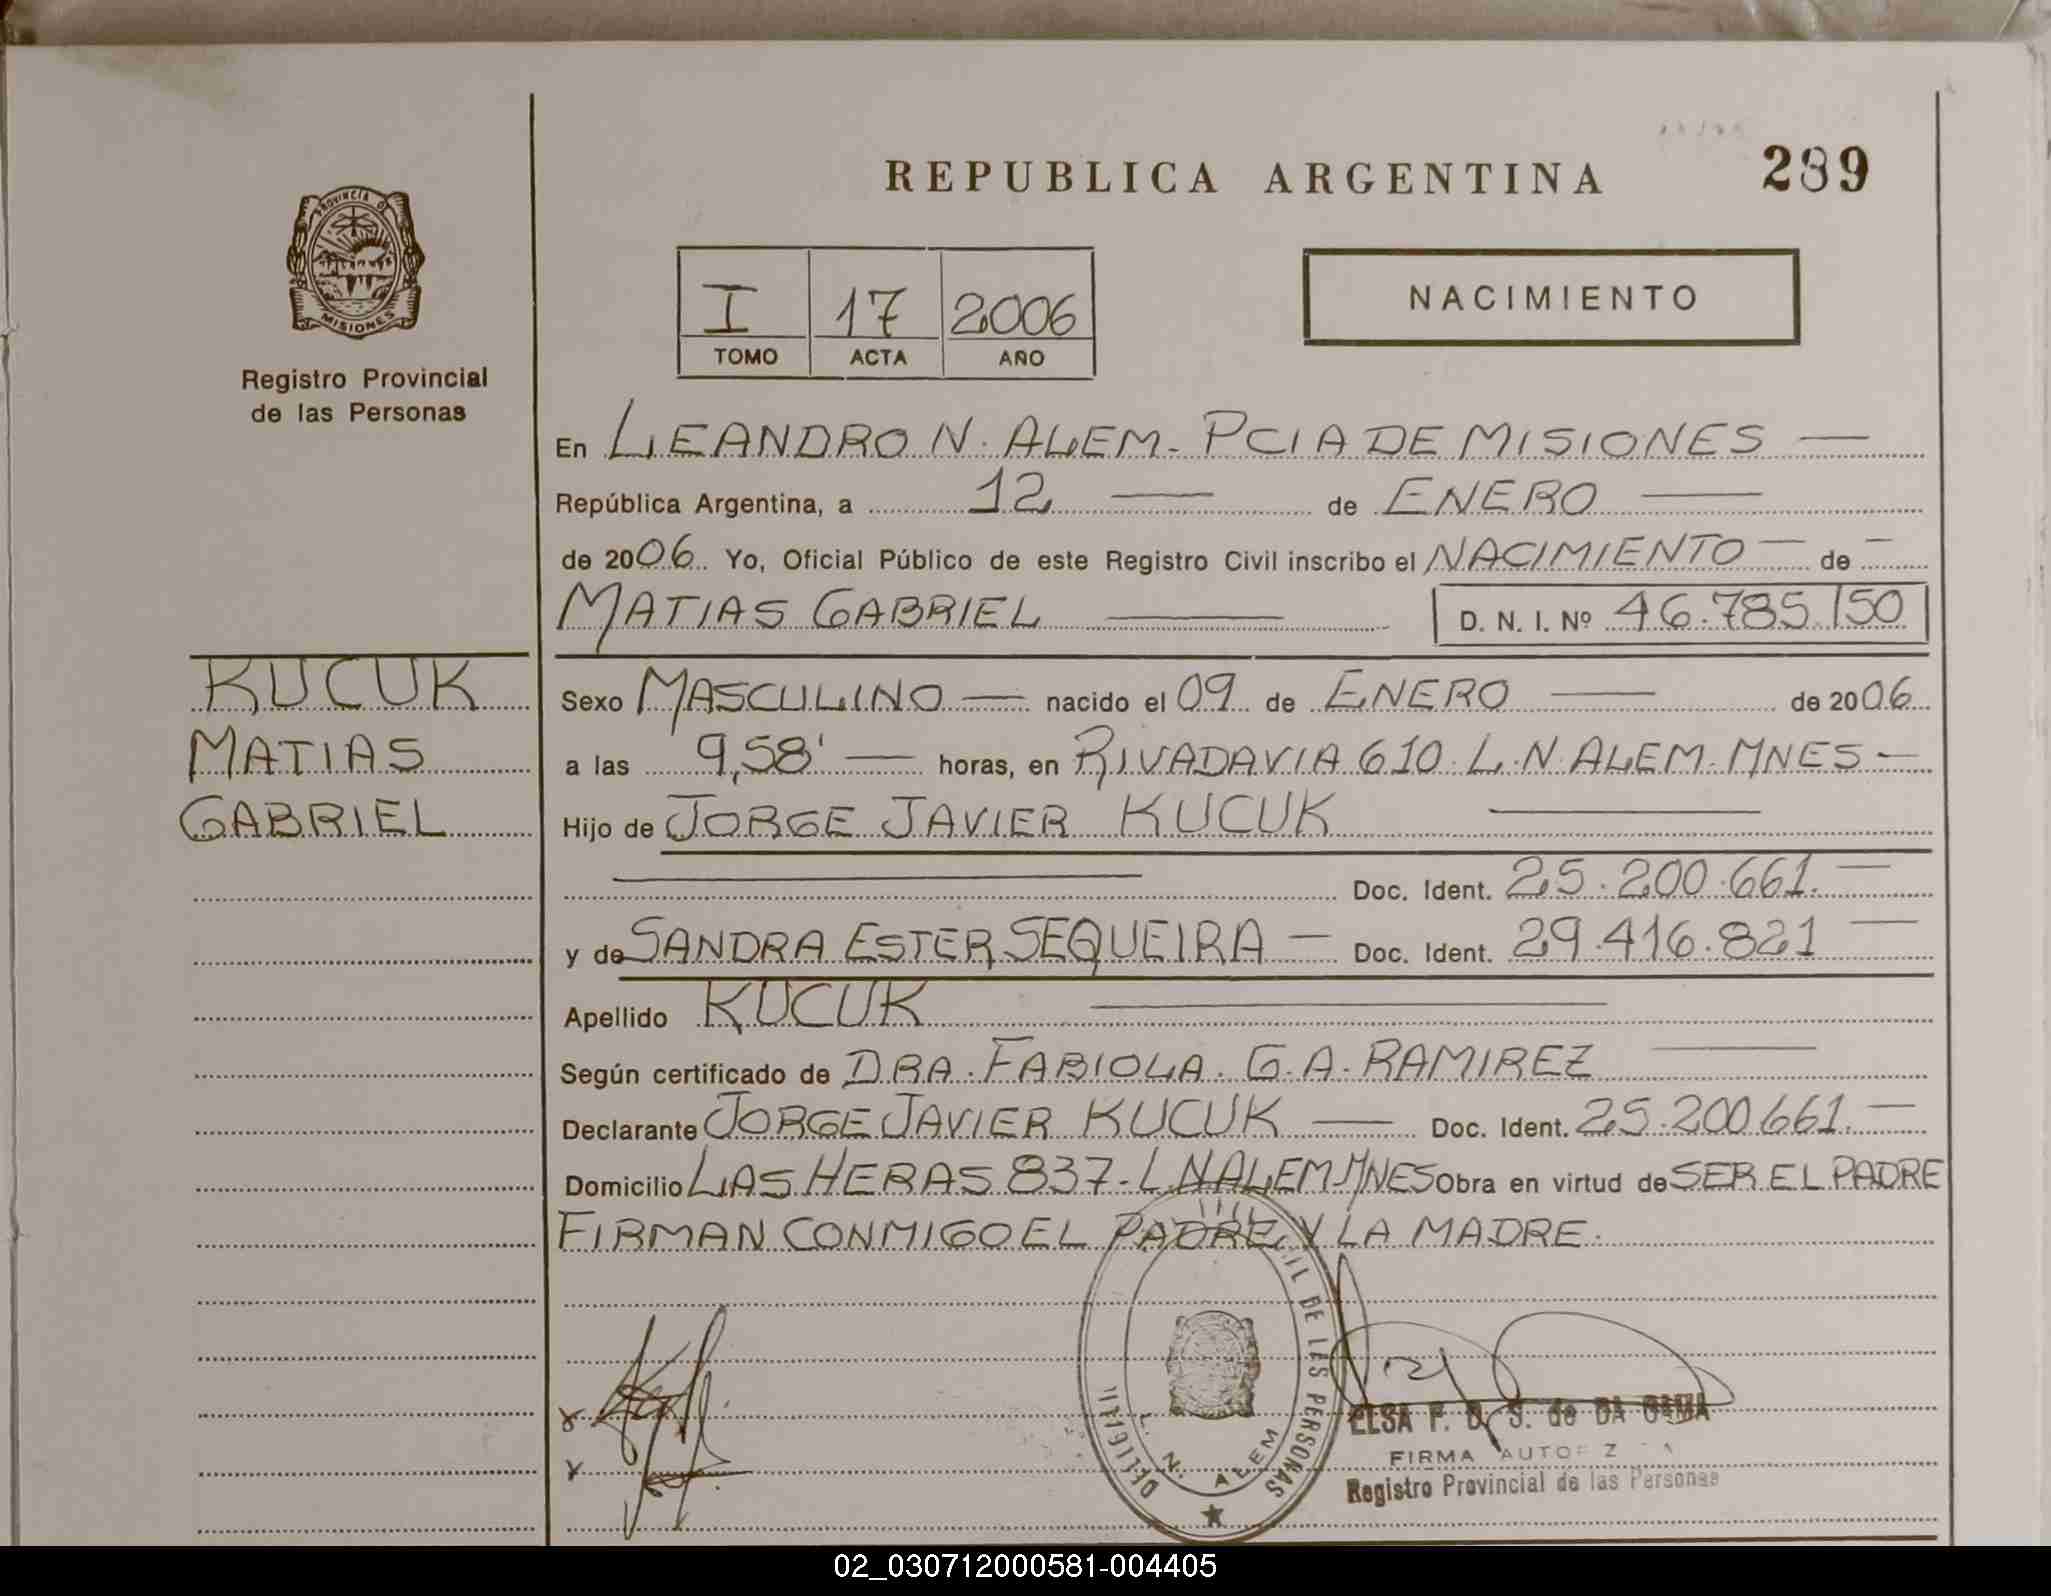 REPUBLICA ARGENTINA 289
PROVINCIA DE
MISIONES
Registro Provincial
de las Personas
I 17 2006
TOMO ACTA AÑO
NACIMIENTO
En LEANDRO N. ALEM - PCIA DE MISIONES —
República Argentina, a 12 — de ENERO —
de 2006 Yo, Oficial Público de este Registro Civil inscribo el NACIMIENTO — de —
MATIAS GABRIEL — D. N. I. Nº 46.785.150
KUCUK
MATIAS
GABRIEL
Sexo MASCULINO — nacido el 09 de ENERO — de 2006
a las 9,58' — horas, en RIVADAVIA 610. L.N. ALEM. MNES —
Hijo de JORGE JAVIER KUCUK —
— Doc. Ident. 25.200.661. —
y de SANDRA ESTER SEQUEIRA — Doc. Ident. 29.416.821 —
Apellido KUCUK —
Según certificado de DRA. FABIOLA. G. A. RAMIREZ —
Declarante JORGE JAVIER KUCUK — Doc. Ident. 25.200661. —
Domicilio LAS HERAS 837 - L N ALEM MNES Obra en virtud de SER EL PADRE
FIRMAN CONMIGO EL PADRE Y LA MADRE.
DE LAS PERSONAS
L. N. ALEM
ELSA F. D. S. de DA GAMA
FIRMA
Registro Provincial de las Personas
02_030712000581-004405